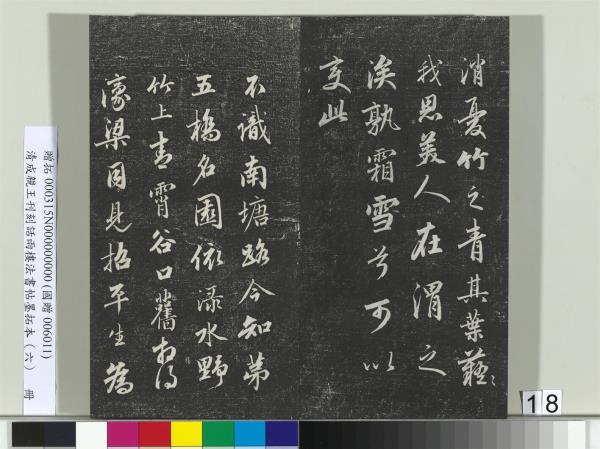 消憂竹之青其葉蘺〻
我思美人在渭之
涘孰霜雪兮可以
此
不識南塘路今知第
五橋名園依淥水野
竹上青霄谷口舊相得
濠梁同見招平生為
贈拓 000315N000000000 (國贈 006011)
清成親王刊刻話雨樓法書帖墨拓本（六） 冊
18